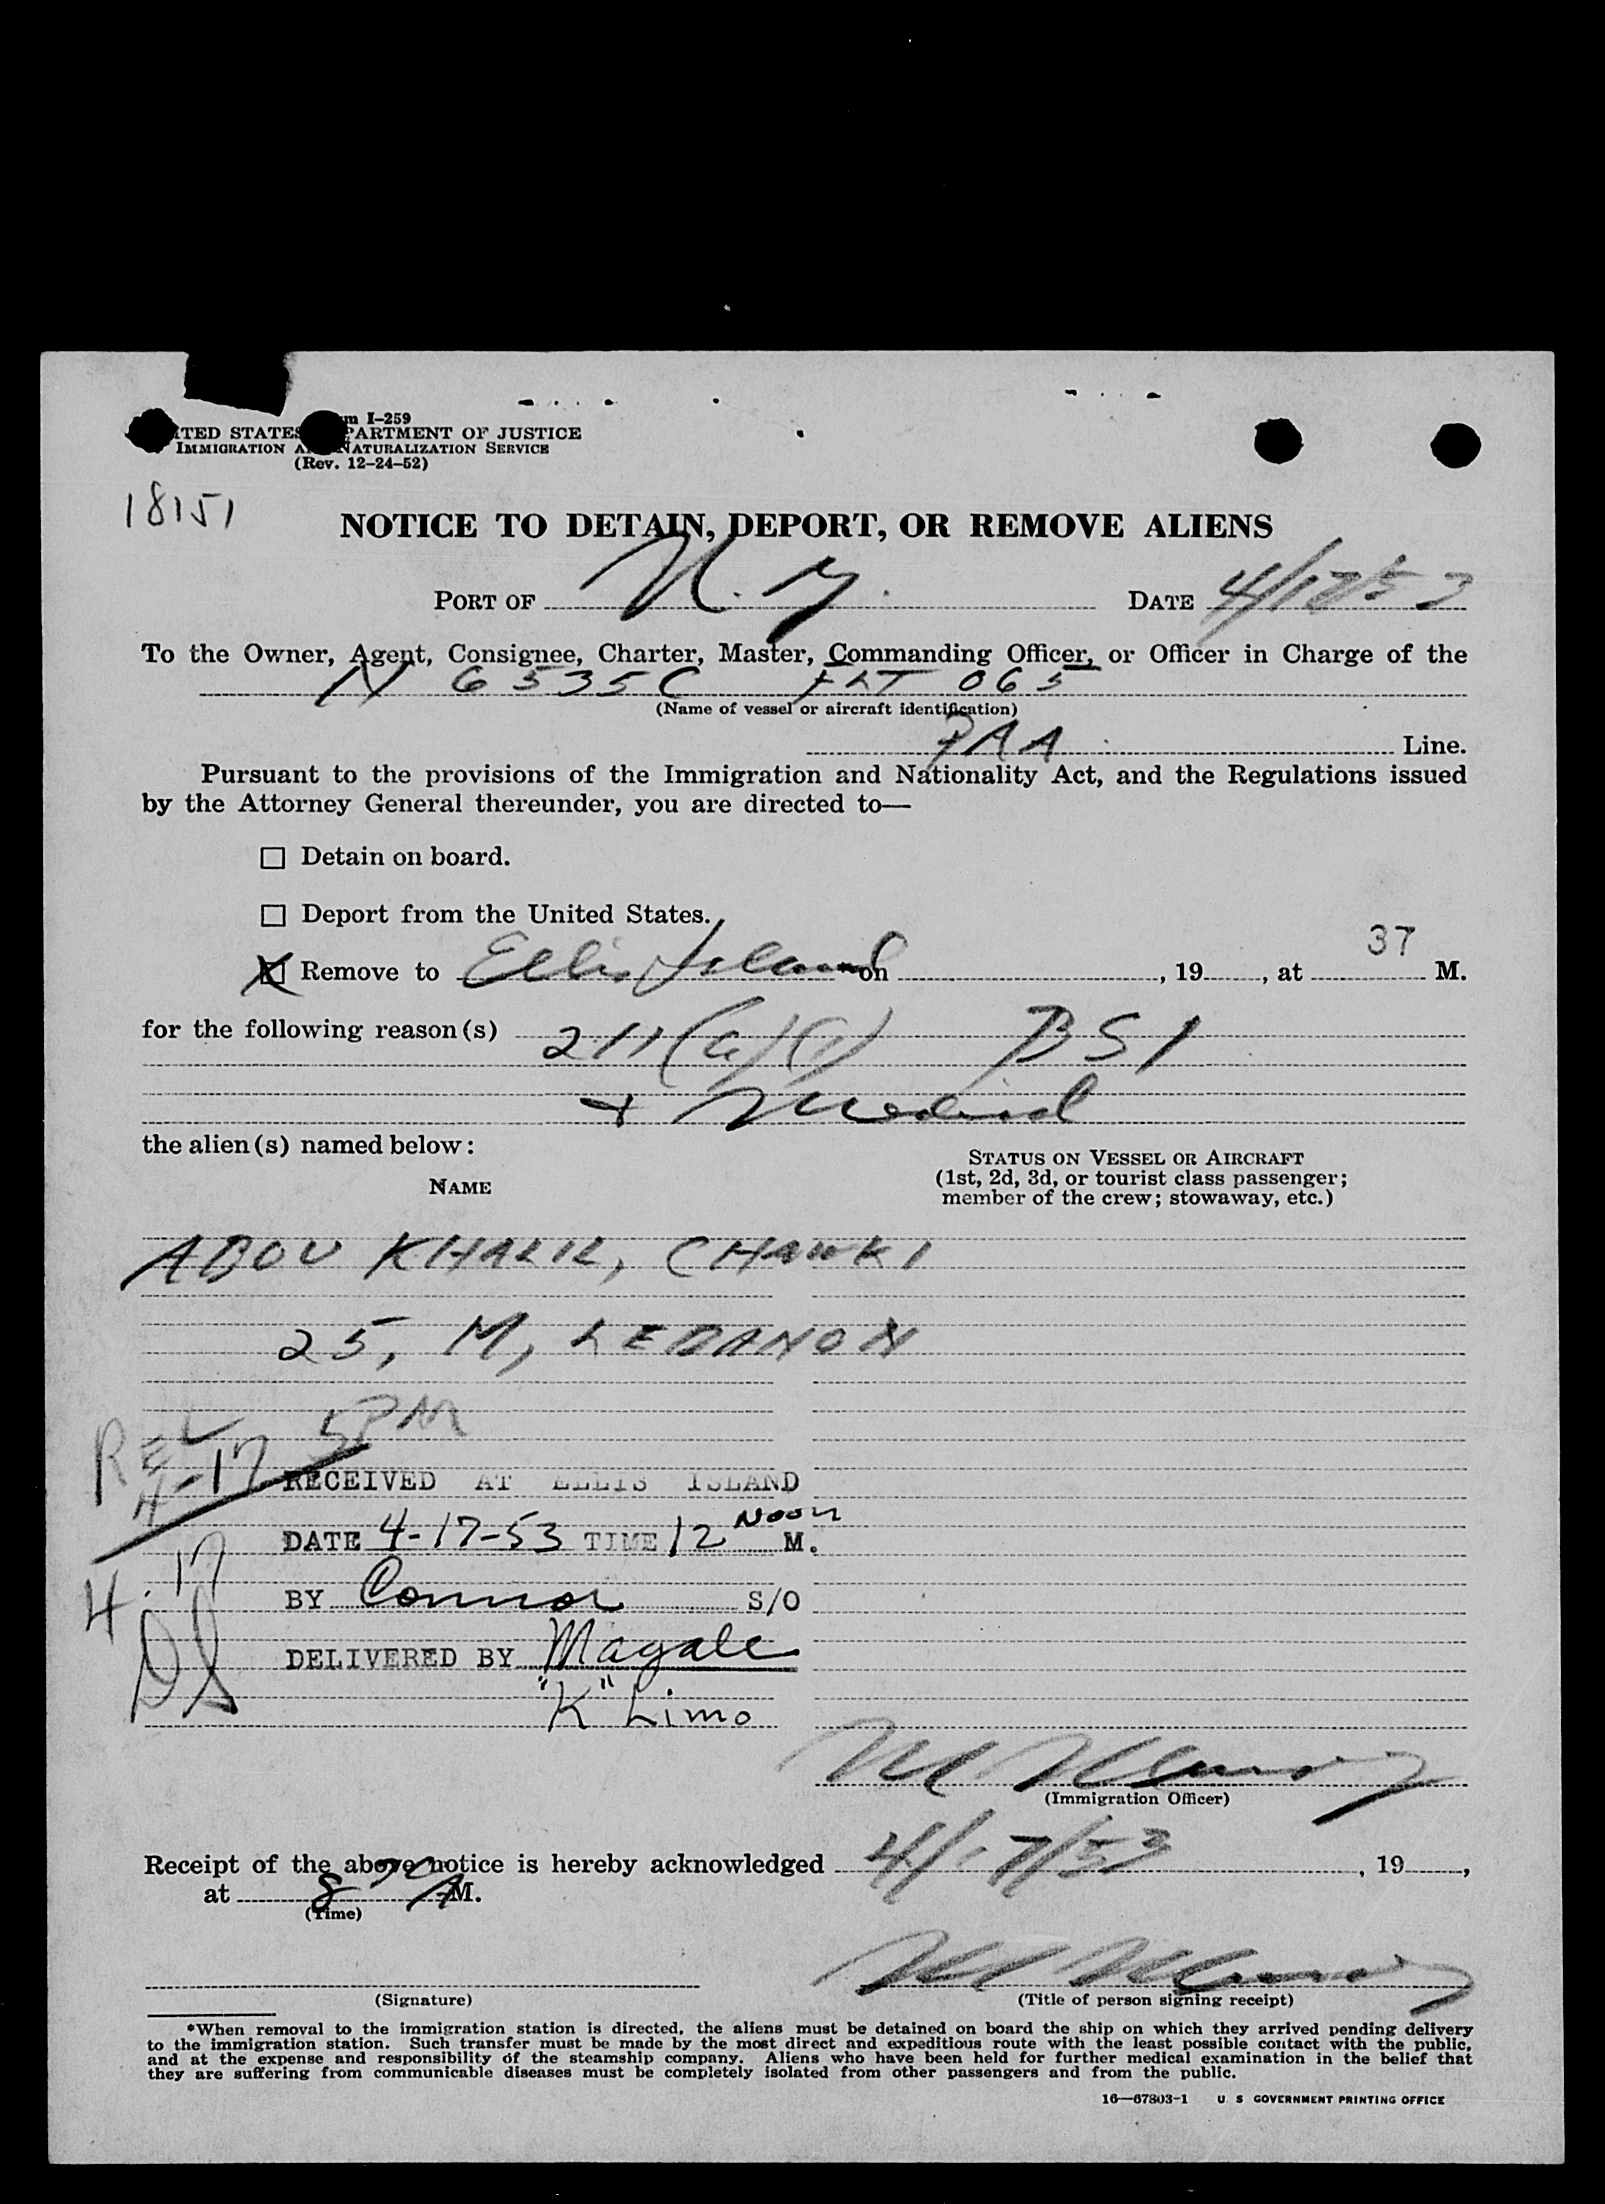 m I-259
ITED STATES PARTMENT OF JUSTICE
IMMIGRATION A NATURALIZATION SERVICE
(Rev. 12-24-52)
18151
NOTICE TO DETAIN, DEPORT, OR REMOVE ALIENS
PORT OF N.Y. DATE 4/17/53
To the Owner, Agent, Consignee, Charter, Master, Commanding Officer, or Officer in Charge of the
N 6535C FLT 065
(Name of vessel or aircraft identification)
PAA Line.
Pursuant to the provisions of the Immigration and Nationality Act, and the Regulations issued
by the Attorney General thereunder, you are directed to—
Detain on board.
Deport from the United States.
37
Remove to Ellis Island *on , 19 , at M.
for the following reason(s) 211(a)(1) BSI
+ Medical
the alien(s) named below:
NAME
STATUS ON VESSEL OR AIRCRAFT
(1st, 2d, 3d, or tourist class passenger;
member of the crew; stowaway, etc.)
ABOU KHALIL, CHAWKI
25, M, LEBANON
REL 5PM
4-17
RECEIVED AT ELLIS ISLAND
DATE 4-17-53 TIME 12 NOON M.
4.17
BY Connor S/O
DELIVERED BY Magale
"K" Limo
(Immigration Officer)
Receipt of the above notice is hereby acknowledged 4/17/53 , 19 ,
at 8 AM.
(Time)
(Signature)
(Title of person signing receipt)
*When removal to the immigration station is directed, the aliens must be detained on board the ship on which they arrived pending delivery
to the immigration station. Such transfer must be made by the most direct and expeditious route with the least possible contact with the public,
and at the expense and responsibility of the steamship company. Aliens who have been held for further medical examination in the belief that
they are suffering from communicable diseases must be completely isolated from other passengers and from the public.
16—67803-1 U S GOVERNMENT PRINTING OFFICE